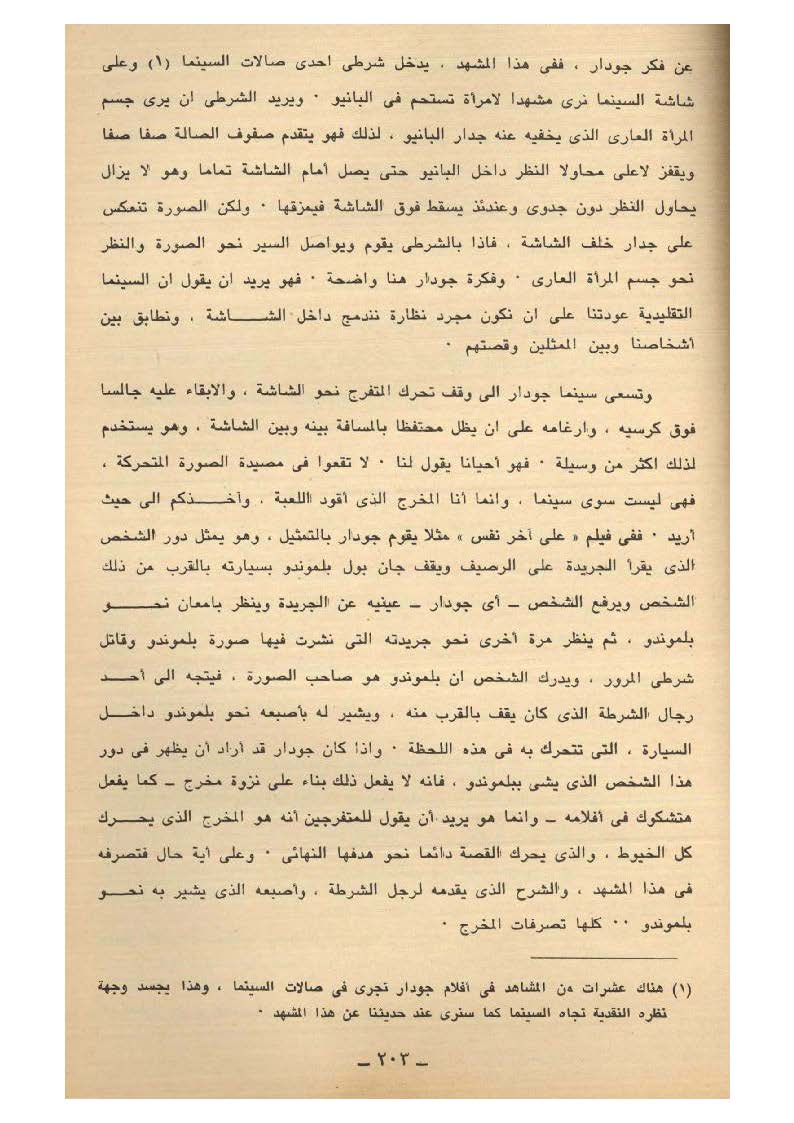 عن فكر جودار ، ففى هذا المشهد ، يدخل شرطى احدى صالات السينما (١) وعلى
شاشة السينما نرى مشهدا لامرأة تستحم فى البانيو ٠ ويريد الشرطى ان يرى جسم
المرأة العارى الذى يخفيه عنه جدار البانيو ، لذلك فهو يتقدم صفوف الصالة صفا صفا
ويقفز لاعلى محاولا النظر داخل البانيو حتى يصل أمام الشاشة تماما وهو لا يزال
يحاول النظر دون جدوى وعندئذ يسقط فوق الشاشة فيمزقها ٠ ولكن الصورة تنعكس
على جدار خلف الشاشة ، فاذا بالشرطى يقوم ويواصل السير نحو الصورة والنظر
نحو جسم المرأة العارى ٠ وفكرة جودار هنا واضحة ٠ فهو يريد ان يقول ان السينما
التقليدية عودتنا على ان نكون مجرد نظارة نندمج داخل الشـــــاشة ، ونطابق بين
أشخاصنا وبين الممثلين وقصتهم ٠
وتسعى سينما جودار الى وقف تحرك المتفرج نحو الشاشة ، والابقاء عليه جالسا
فوق كرسيه ، وارغامه على ان يظل محتفظا بالمسافة بينه وبين الشاشة ، وهو يستخدم
لذلك اكثر من وسيلة ٠ فهو أحيانا يقول لنا ٠ لا تقعوا فى مصيدة الصورة المتحركة ،
فهى ليست سوى سينما ، وانما أنا المخرج الذى أقود اللعبة ، وآخـــذكم الى حيث
أريد ٠ ففى فيلم « على آخر نفس » مثلا يقوم جودار بالتمثيل ، وهو يمثل دور الشخص
الذى يقرأ الجريدة على الرصيف ويقف جان بول بلموندو بسيارته بالقرب من ذلك
الشخص ويرفع الشخص ــ أى جودار ــ عينيه عن الجريدة وينظر بامعان نحـــو
بلموندو ، ثم ينظر مرة أخرى نحو جريدته التى نشرت فيها صورة بلموندو وقاتل
شرطى المرور ، ويدرك الشخص ان بلموندو هو صاحب الصورة ، فيتجه الى أحـــد
رجال الشرطة الذى كان يقف بالقرب منه ، ويشير له بأصبعه نحو بلموندو داخـــل
السيارة ، التى تتحرك به فى هذه اللحظة ٠ واذا كان جودار قد أراد أن يظهر فى دور
هذا الشخص الذى يشى ببلموندو ، فانه لا يفعل ذلك بناء على نزوة مخرج ــ كما يفعل
هتشكوك فى أفلامه ــ وانما هو يريد أن يقول للمتفرجين أنه هو المخرج الذى يحـــرك
كل الخيوط ، والذى يحرك القصة دائما نحو هدفها النهائى ٠ وعلى أية حال فتصرفه
فى هذا المشهد ، والشرح الذى يقدمه لرجل الشرطة ، وأصبعه الذى يشير به نحـــو
بلموندو ٠٠ كلها تصرفات المخرج ٠
(١) هناك عشرات من المشاهد فى أفلام جودار تجرى فى صالات السينما ، وهذا يجسد وجهة
نظره النقدية تجاه السينما كما سنرى عند حديثنا عن هذا المشهد ٠
ــ ٢٠٣ ــ